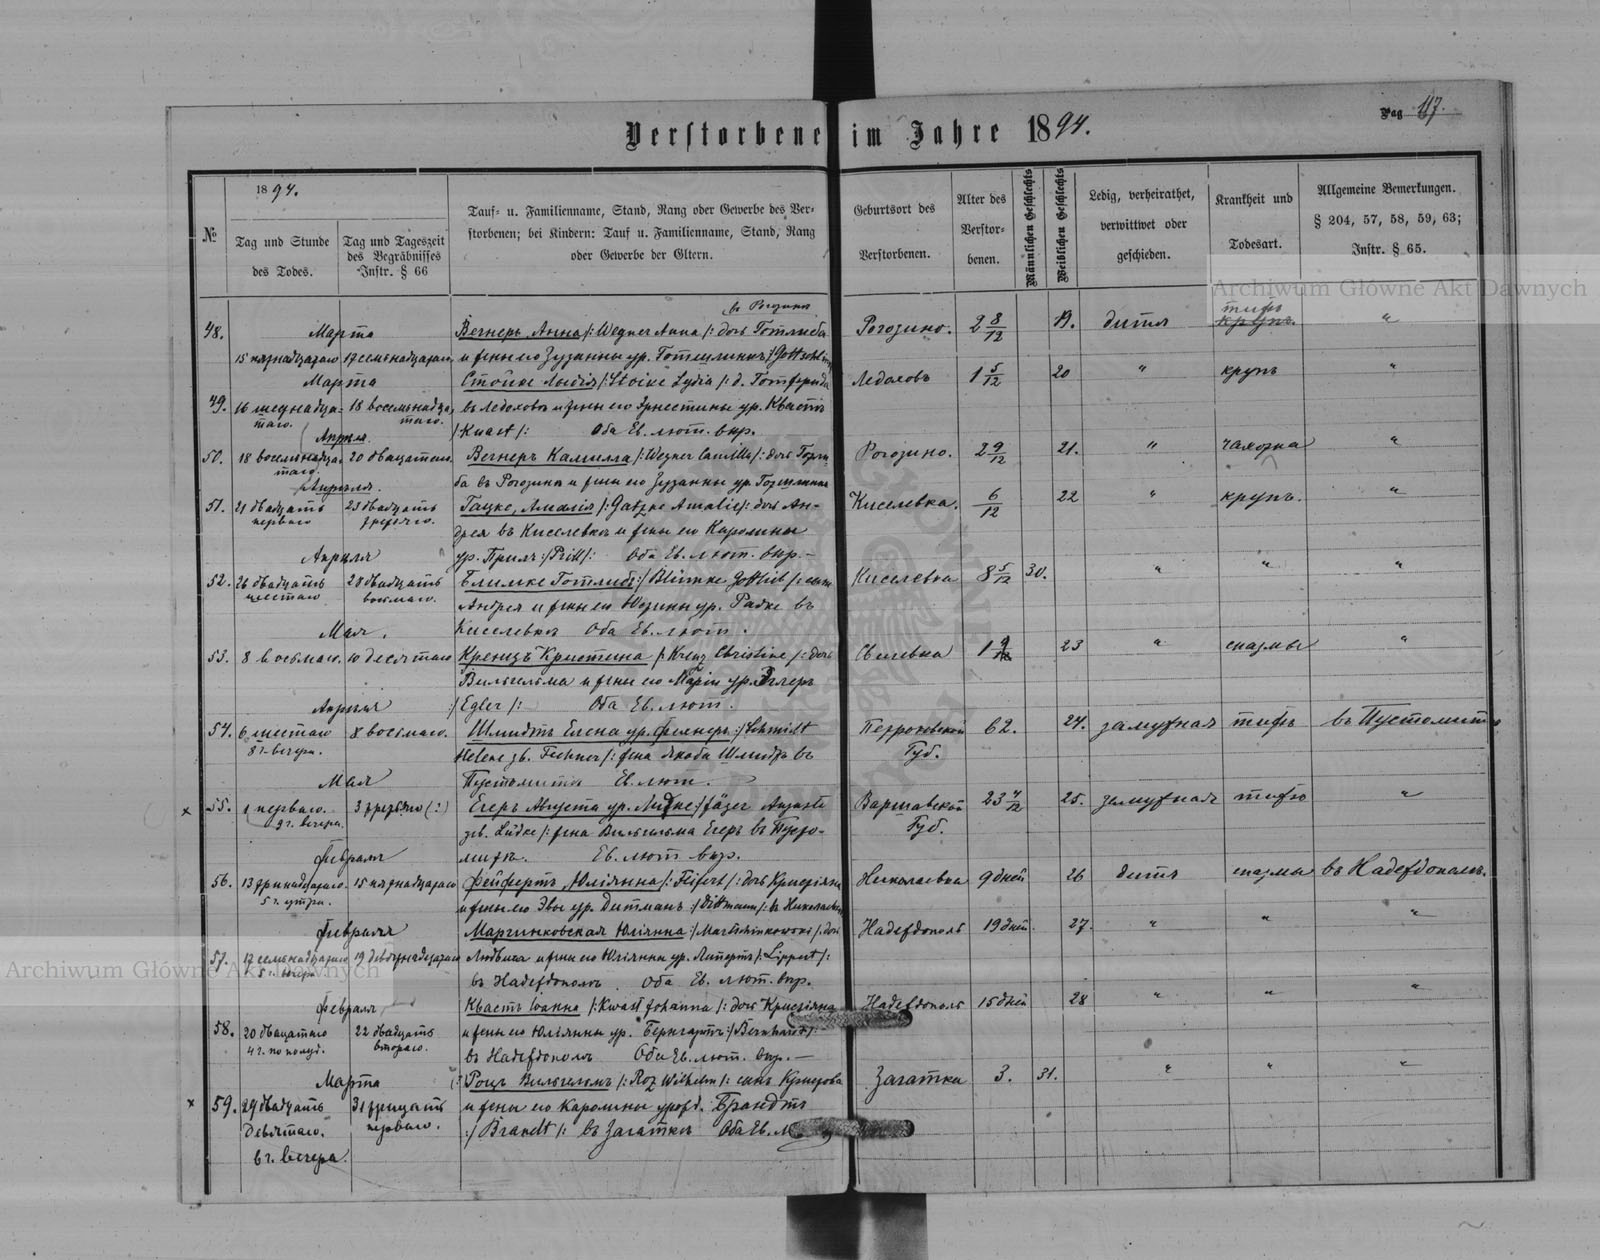 Pag 117.
Verstorbene im Jahre 1894.
№
1894.
Tag und Stunde des Todes.
Tag und Tageszeit des Begräbnisses Instr. § 66
Tauf- u. Familienname, Stand, Rang oder Gewerbe des Ver-
storbenen; bei Kindern: Tauf u. Familienname, Stand, Rang
oder Gewerbe der Eltern.
Geburtsort des Verstorbenen.
Alter des Verstor-benen.
Männlichen Geschlechts
Weiblichen Geschlechts
Ledig, verheirathet, verwittwet oder geschieden.
Krankheit und Todesart.
Allgemeine Bemerkungen.
§ 204, 57, 58, 59, 63;
Instr. § 65.
Archiwum Główne Akt Dawnych
въ Рогозинѣ
48. Марта Вегнеръ Анна /: Wegner Anna /: дочь Готлиба Рогозино. 2 8/12 19. дитя тифъ "
15 пятнадцатаго 17 семьнадцатаго и жены его Зузанны ур. Готшлингъ /: Gottschling
Марта Стойке Лидія /: Stoike Lydia /: д. Готфрида Ледоховъ 1 5/12 20 " крупъ "
49. 16 шестнадца-таго. 18 восемьнадца-таго. въ Ледоховѣ и жены его Эрнестины ур. Квастъ
/ Kwast /: Оба Ев. лют. вѣр.
Апрѣля
50. 18 восемьнадца-таго 20 двадцатаго Вегнеръ Камилла /: Wegner Camilla /: дочь Готли- Рогозино. 2 9/12 21. " чахотка "
ба въ Рогозинѣ и жены его Зузанны ур. Готшлингъ
Апрѣля.
51. 21 двадцать перваго 23 двадцать третяго. Гацке, Амалія /: Gatzke Amalie /: дочь Ан- Киселевка. 6/12 22 " крупъ. "
дрея въ Киселевкѣ и жены его Каролины
Апрѣля ур. Приль :/ Prill /: Оба Ев. лют. вѣр. —
52. 26 двадцать шестаго 28 двадцать восьмаго. Блимке Готлибъ :/ Blümke Gottlieb /: сынъ Киселевка 8 5/12 30. " " "
Андрея и жены его Юзины ур. Радке въ
Мая. Киселевкѣ Оба Ев. лют.
53. 8 восьмаго. 10 десятаго Кренцъ Кристина /: Krenz Christine /: дочь 1 9/12 23 " спазмы "
Вильгельма и жены его Маріи ур. Эглеръ
Апрѣля :/ Egler /: Оба Ев. лют.
54. 6 шестаго 8 г. вечера. 8 восьмаго. Шмидтъ Елена ур. Фехнеръ :/ Schmidt Петроковской Губ. 62. 24. замужная тифъ въ Пустомит
Helene gb. Fechner /: жена Якоба Шмидтъ въ
Мая Пустомитѣ Ев. лют.
× 55. 1 перваго. 9 г. вечера. 3 третяго (:) Егеръ Августа ур. Лидке :/ Jäger Auguste Варшавской Губ. 23 4/12 25. замужная тифъ "
gb. Lüdke /: жена Вильгельма Егеръ въ Пусто-
Февраля митѣ. Ев. лют вѣр.
56. 13 тринадцатаго. 5 г. утра. 15 пятнадцатаго Фейфертъ, Юліянна /: Feifert /: дочь Кристіяна Николаевка 9 дней 26 дитя спазмы въ Надеждополѣ.
и жены его Эвы ур. Дитманъ :/ Dittmann /: въ Николаевкѣ
Февраля Марцинковская Юліянна :/ Martschinkowski /: дочь Надеждополь 19 дней. 27. " " "
57. 17 семьнадцатаго 5 г. вечера 19 девятнадцатаго Людвика и жены его Юліянны ур. Липертъ /: Lippert /:
въ Надеждополѣ. Оба Ев. лют. вѣр.
Февраля Квастъ Іоанна /: Kwast Johanna /: дочь Кристіяна Надеждополь 15 дней 28 " " "
58. 20 двадцатаго 4 г. по полуд. 22 двадцать втораго. и жены его Юліянны ур. Бернгартъ :/ Bernhardt /:
въ Надеждополѣ Оба Ев. лют. вѣр. —
Марта Роцъ Вильгельмъ /: Roz Wilhelm /: сынъ Загатка 3. 31. " " "
× 59. 29 двадцать Девятаго. 6 г. вечера. 31 тридцать перваго. и жены его Каролины урожд. Брандтъ
:/ Brandt /: въ Загаткѣ Оба Ев.
Archiwum Główne Akt Dawnych